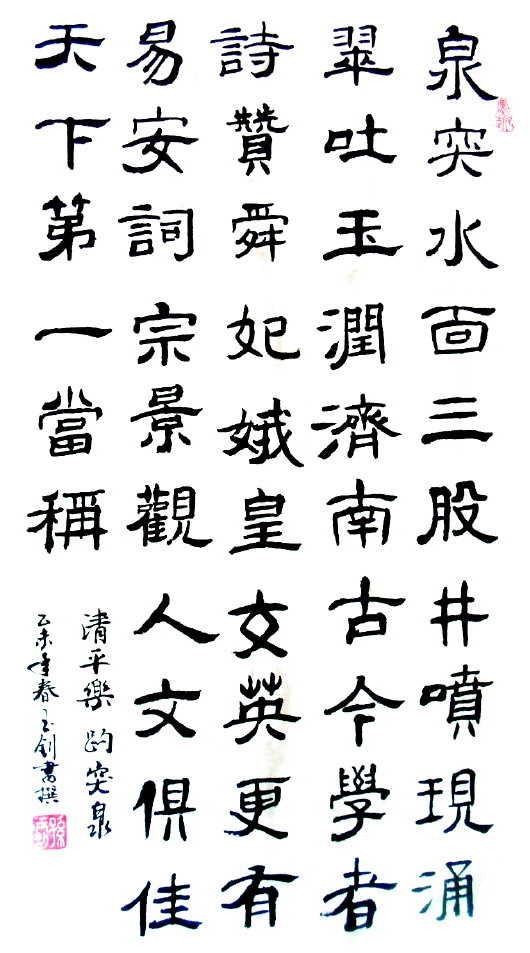 泉突水靣三股井噴現涌
翠吐玉潤濟南古今學者
詩贊舜妃娥皇女英更有
易安詞宗景觀人文俱佳
天下第一當稱
清平樂 趵突泉
乙未年春玉書撰